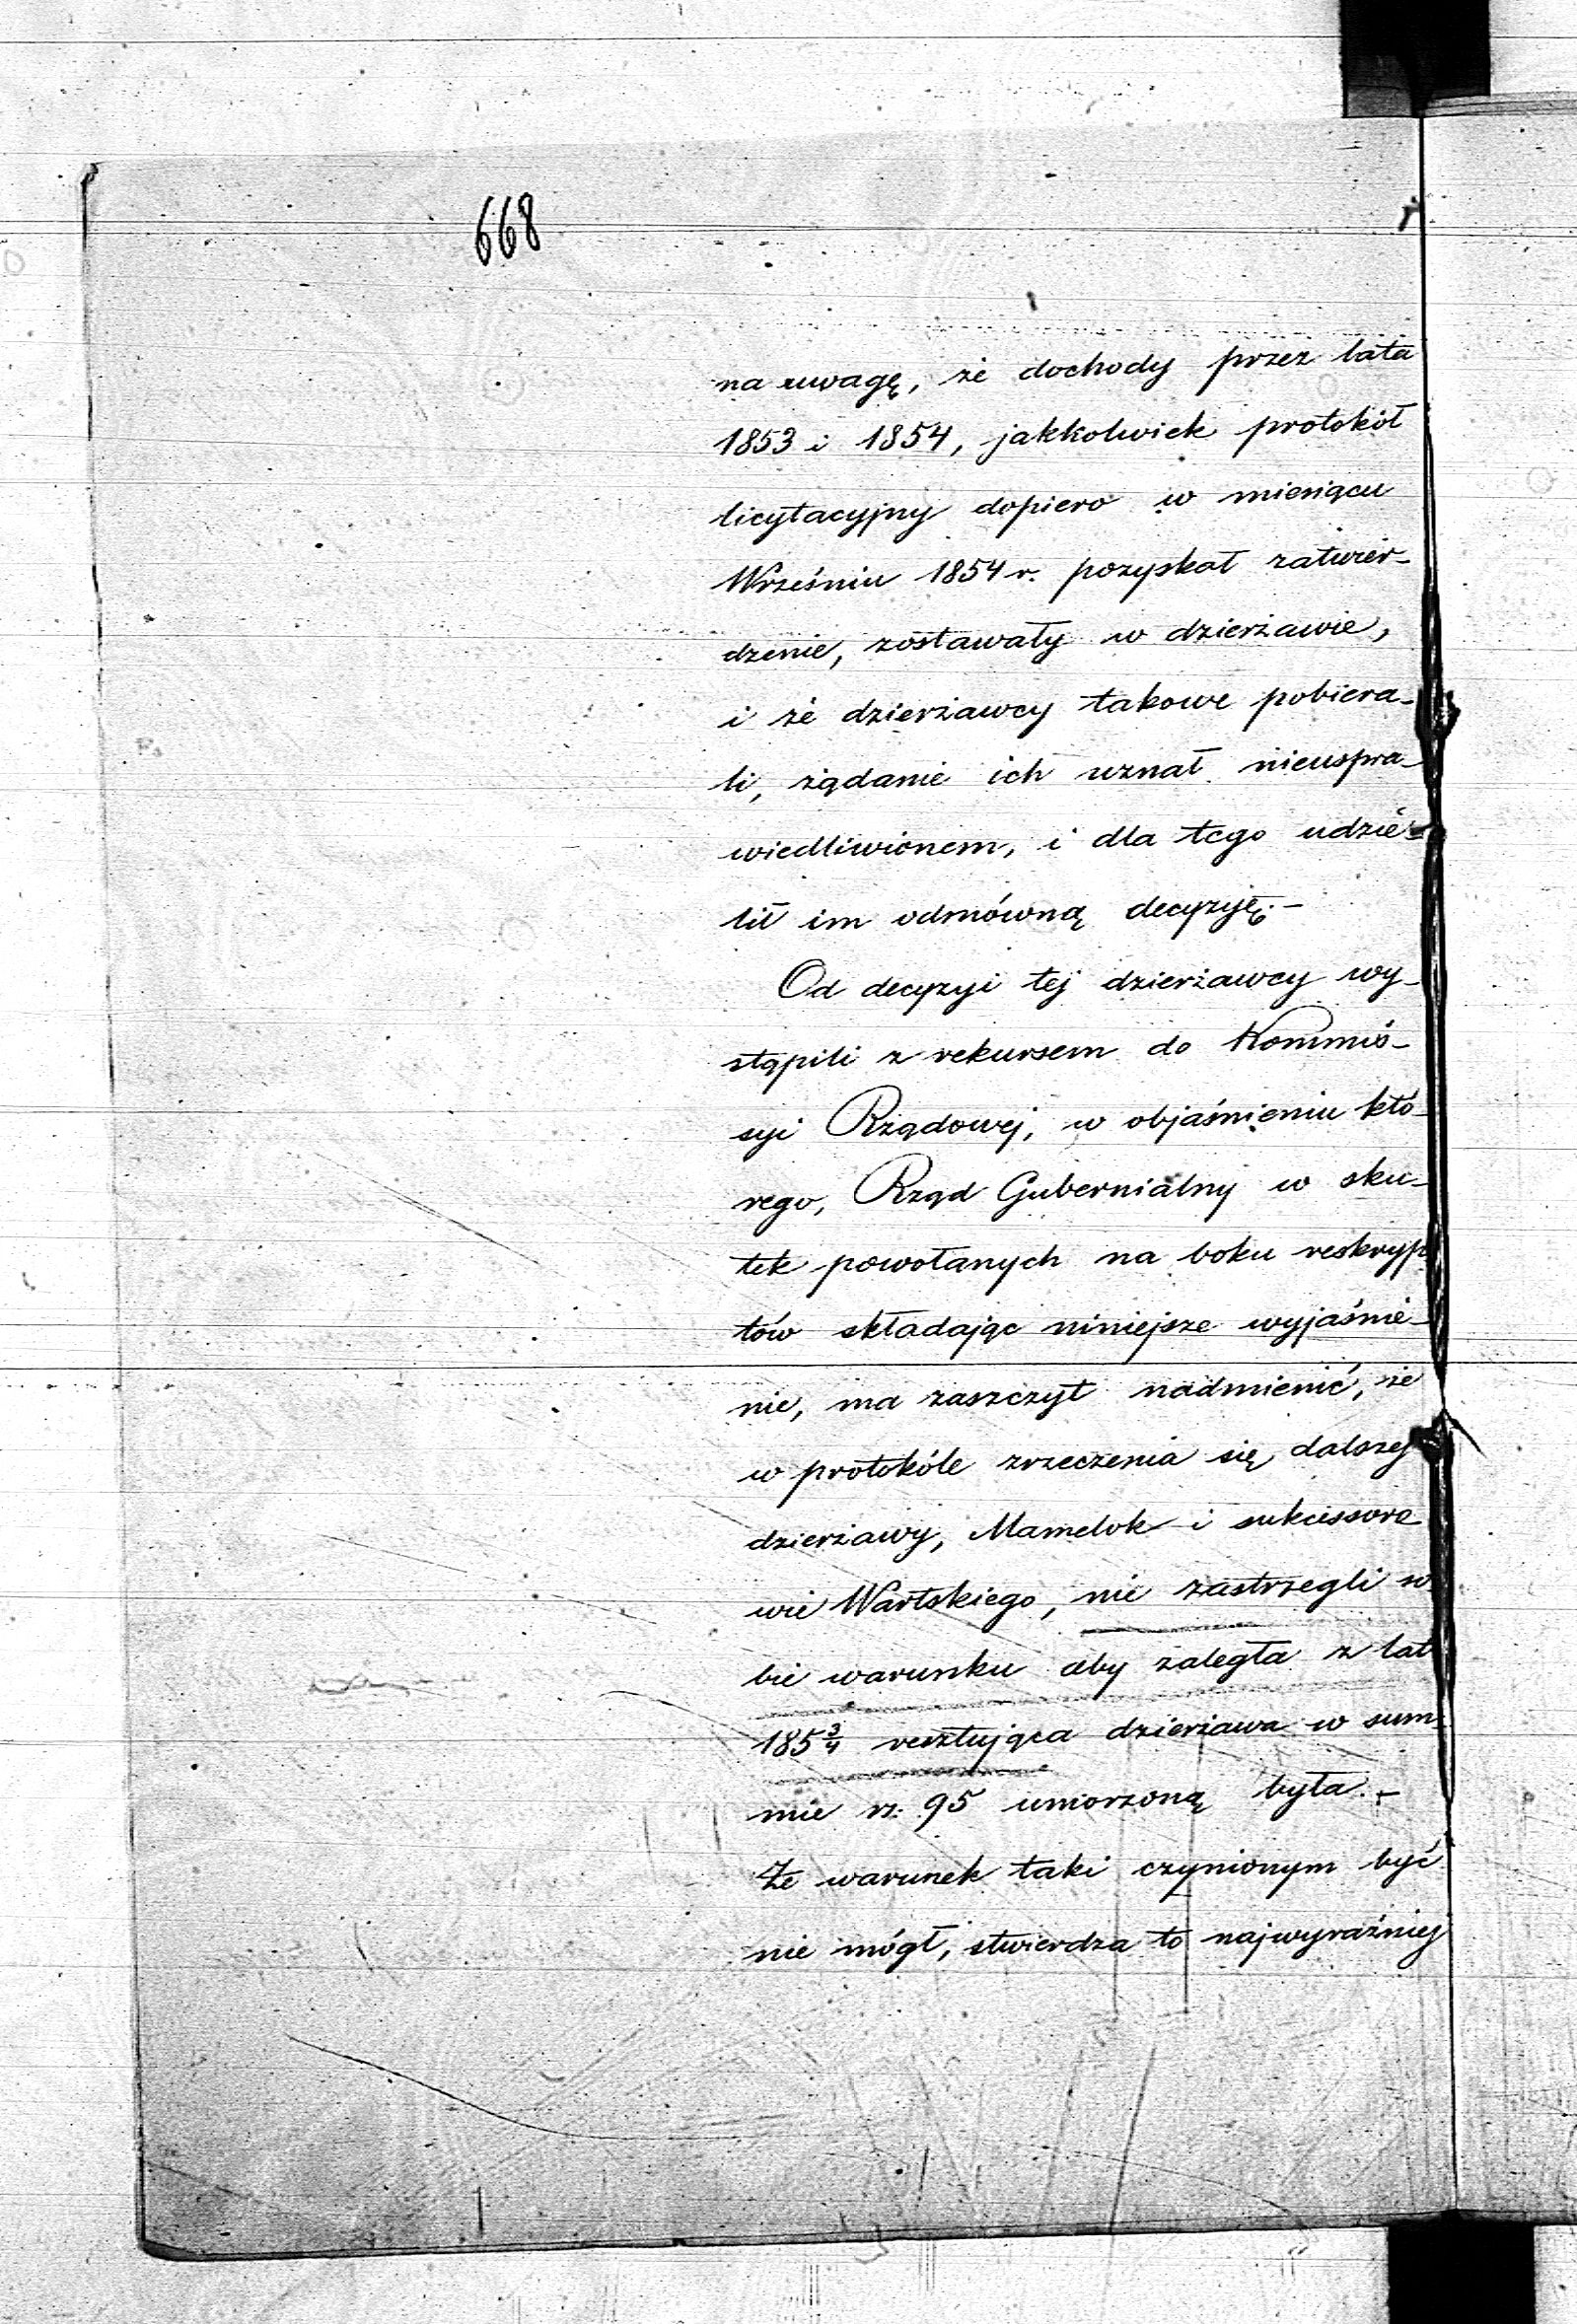 668
na uwagę, że dochody przez lata
1853 i 1854, jakkolwiek protokół
licytacyjny dopiero w miesiącu
Wrześniu 1854 r. pozyskał zatwier-
dzenie, zostawały w dzierżawie,
i że dzierżawcy takowe pobiera-
li, żądanie ich uznał nieuspra-
wiedliwionem, i dla tego udzie-
lił im odmówną decyzyję.-
Od decyzyi tej dzierżawcy wy-
stąpili z rekursem do Kommis-
syi Rządowej, w objaśnieniu któ-
rego, Rząd Gubernialny w sku-
tek powołanych na boku reskryp
tów składając niniejsze wyjaśnie-
nie, ma zaszczyt nadmienić, że
w protokóle zrzeczenia się dalszej
dzierżawy, Mamelok i sukcissoro
wie Wartskiego, nie zastrzegli so
bie warunku aby zaległa z lat
185¾ resztująca dzierżawa w sum
mie rs. 95 umorzoną była.-
Że warunek taki czynionym być
nie mógł, stwierdza to najwyraźniej